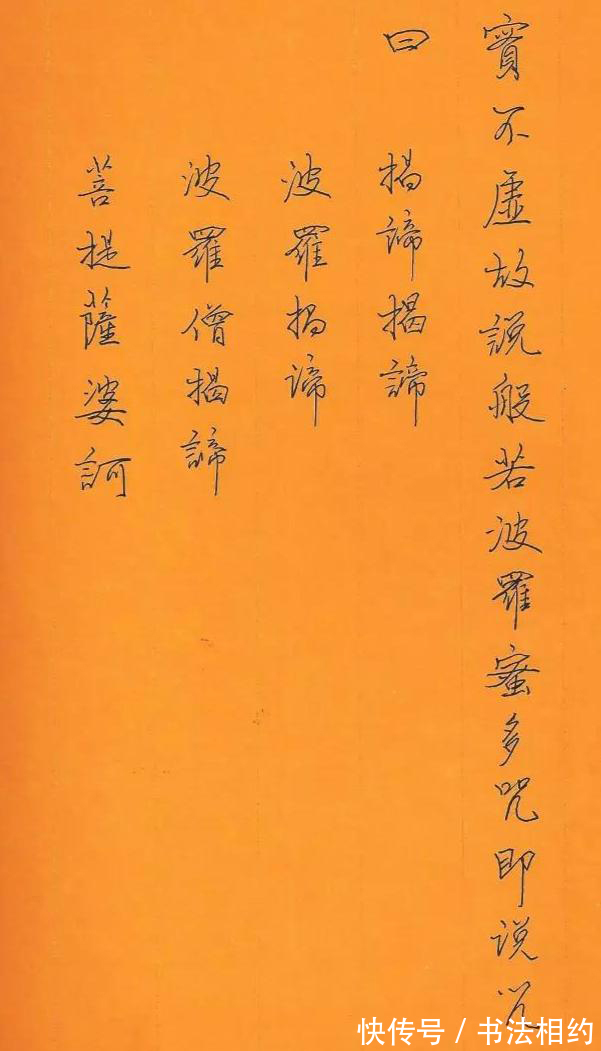 實不虛故說般若波羅蜜多咒即說咒
曰 揭諦揭諦
波羅揭諦
波羅僧揭諦
菩提薩婆訶
快传号 / 书法相约